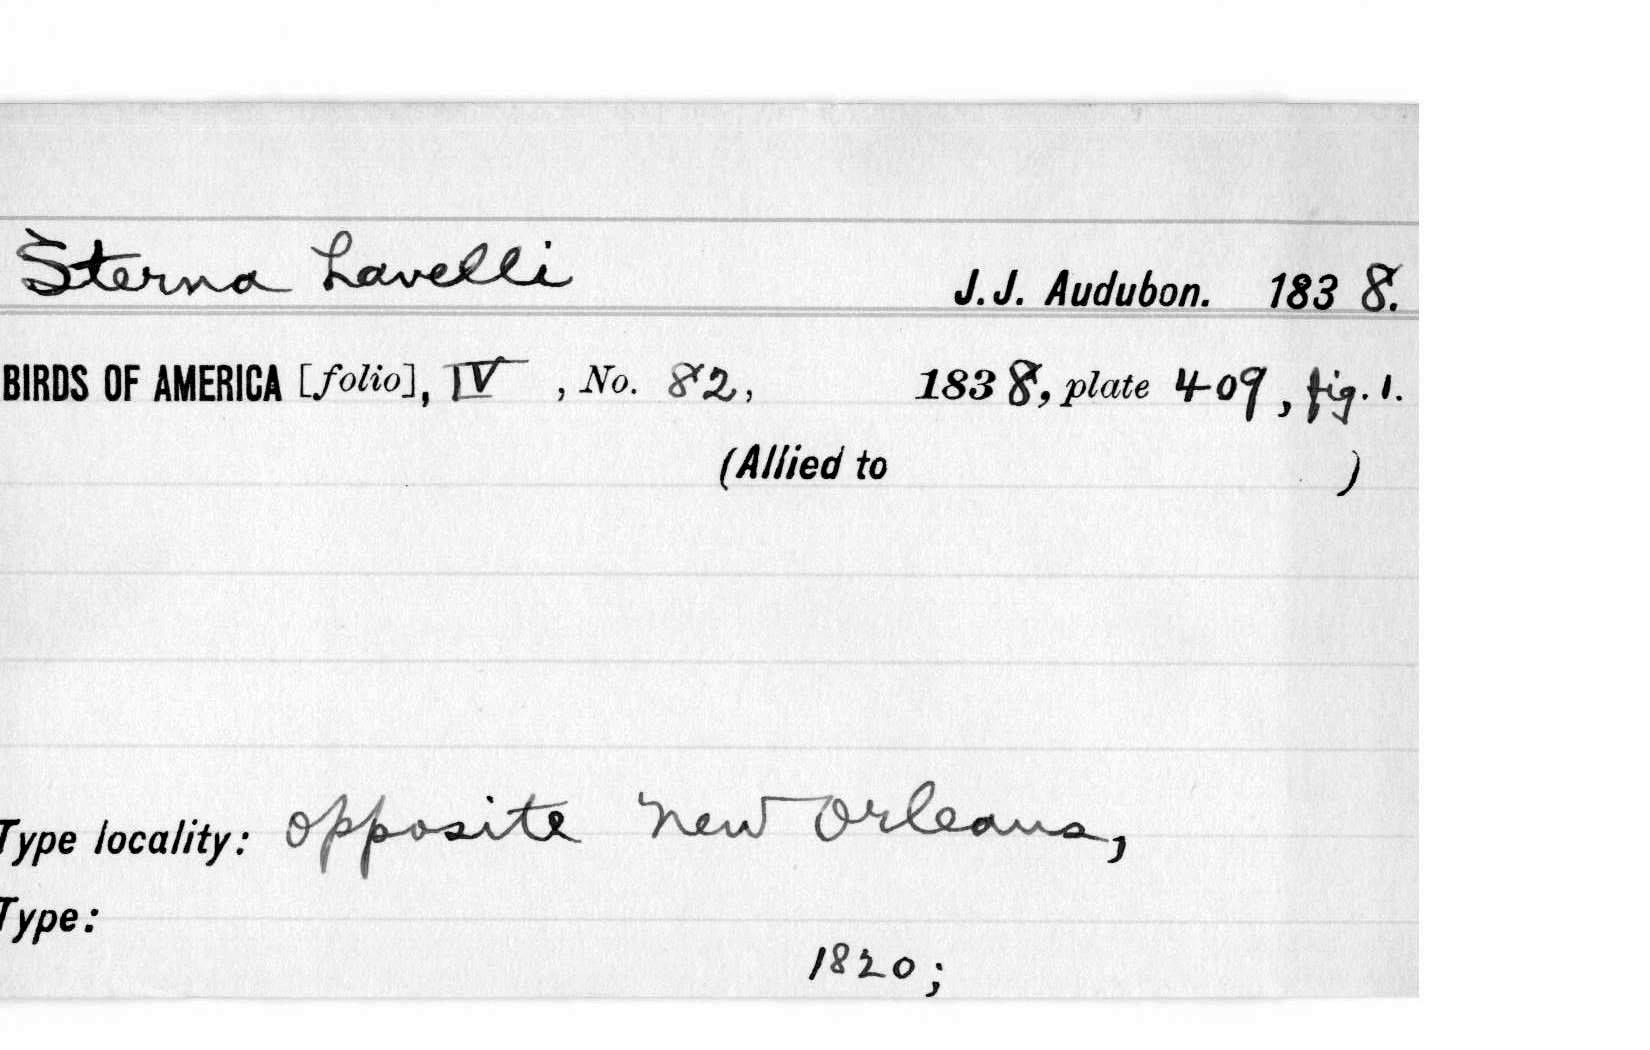 Sterna havelli
J. J. Audubon. 1838.
BIRDS OF AMERICA [folio], IV , No. 82, 1838, plate 409, fig. 1.
(Allied to )
Type locality: opposite New Orleans,
Type:
1820;